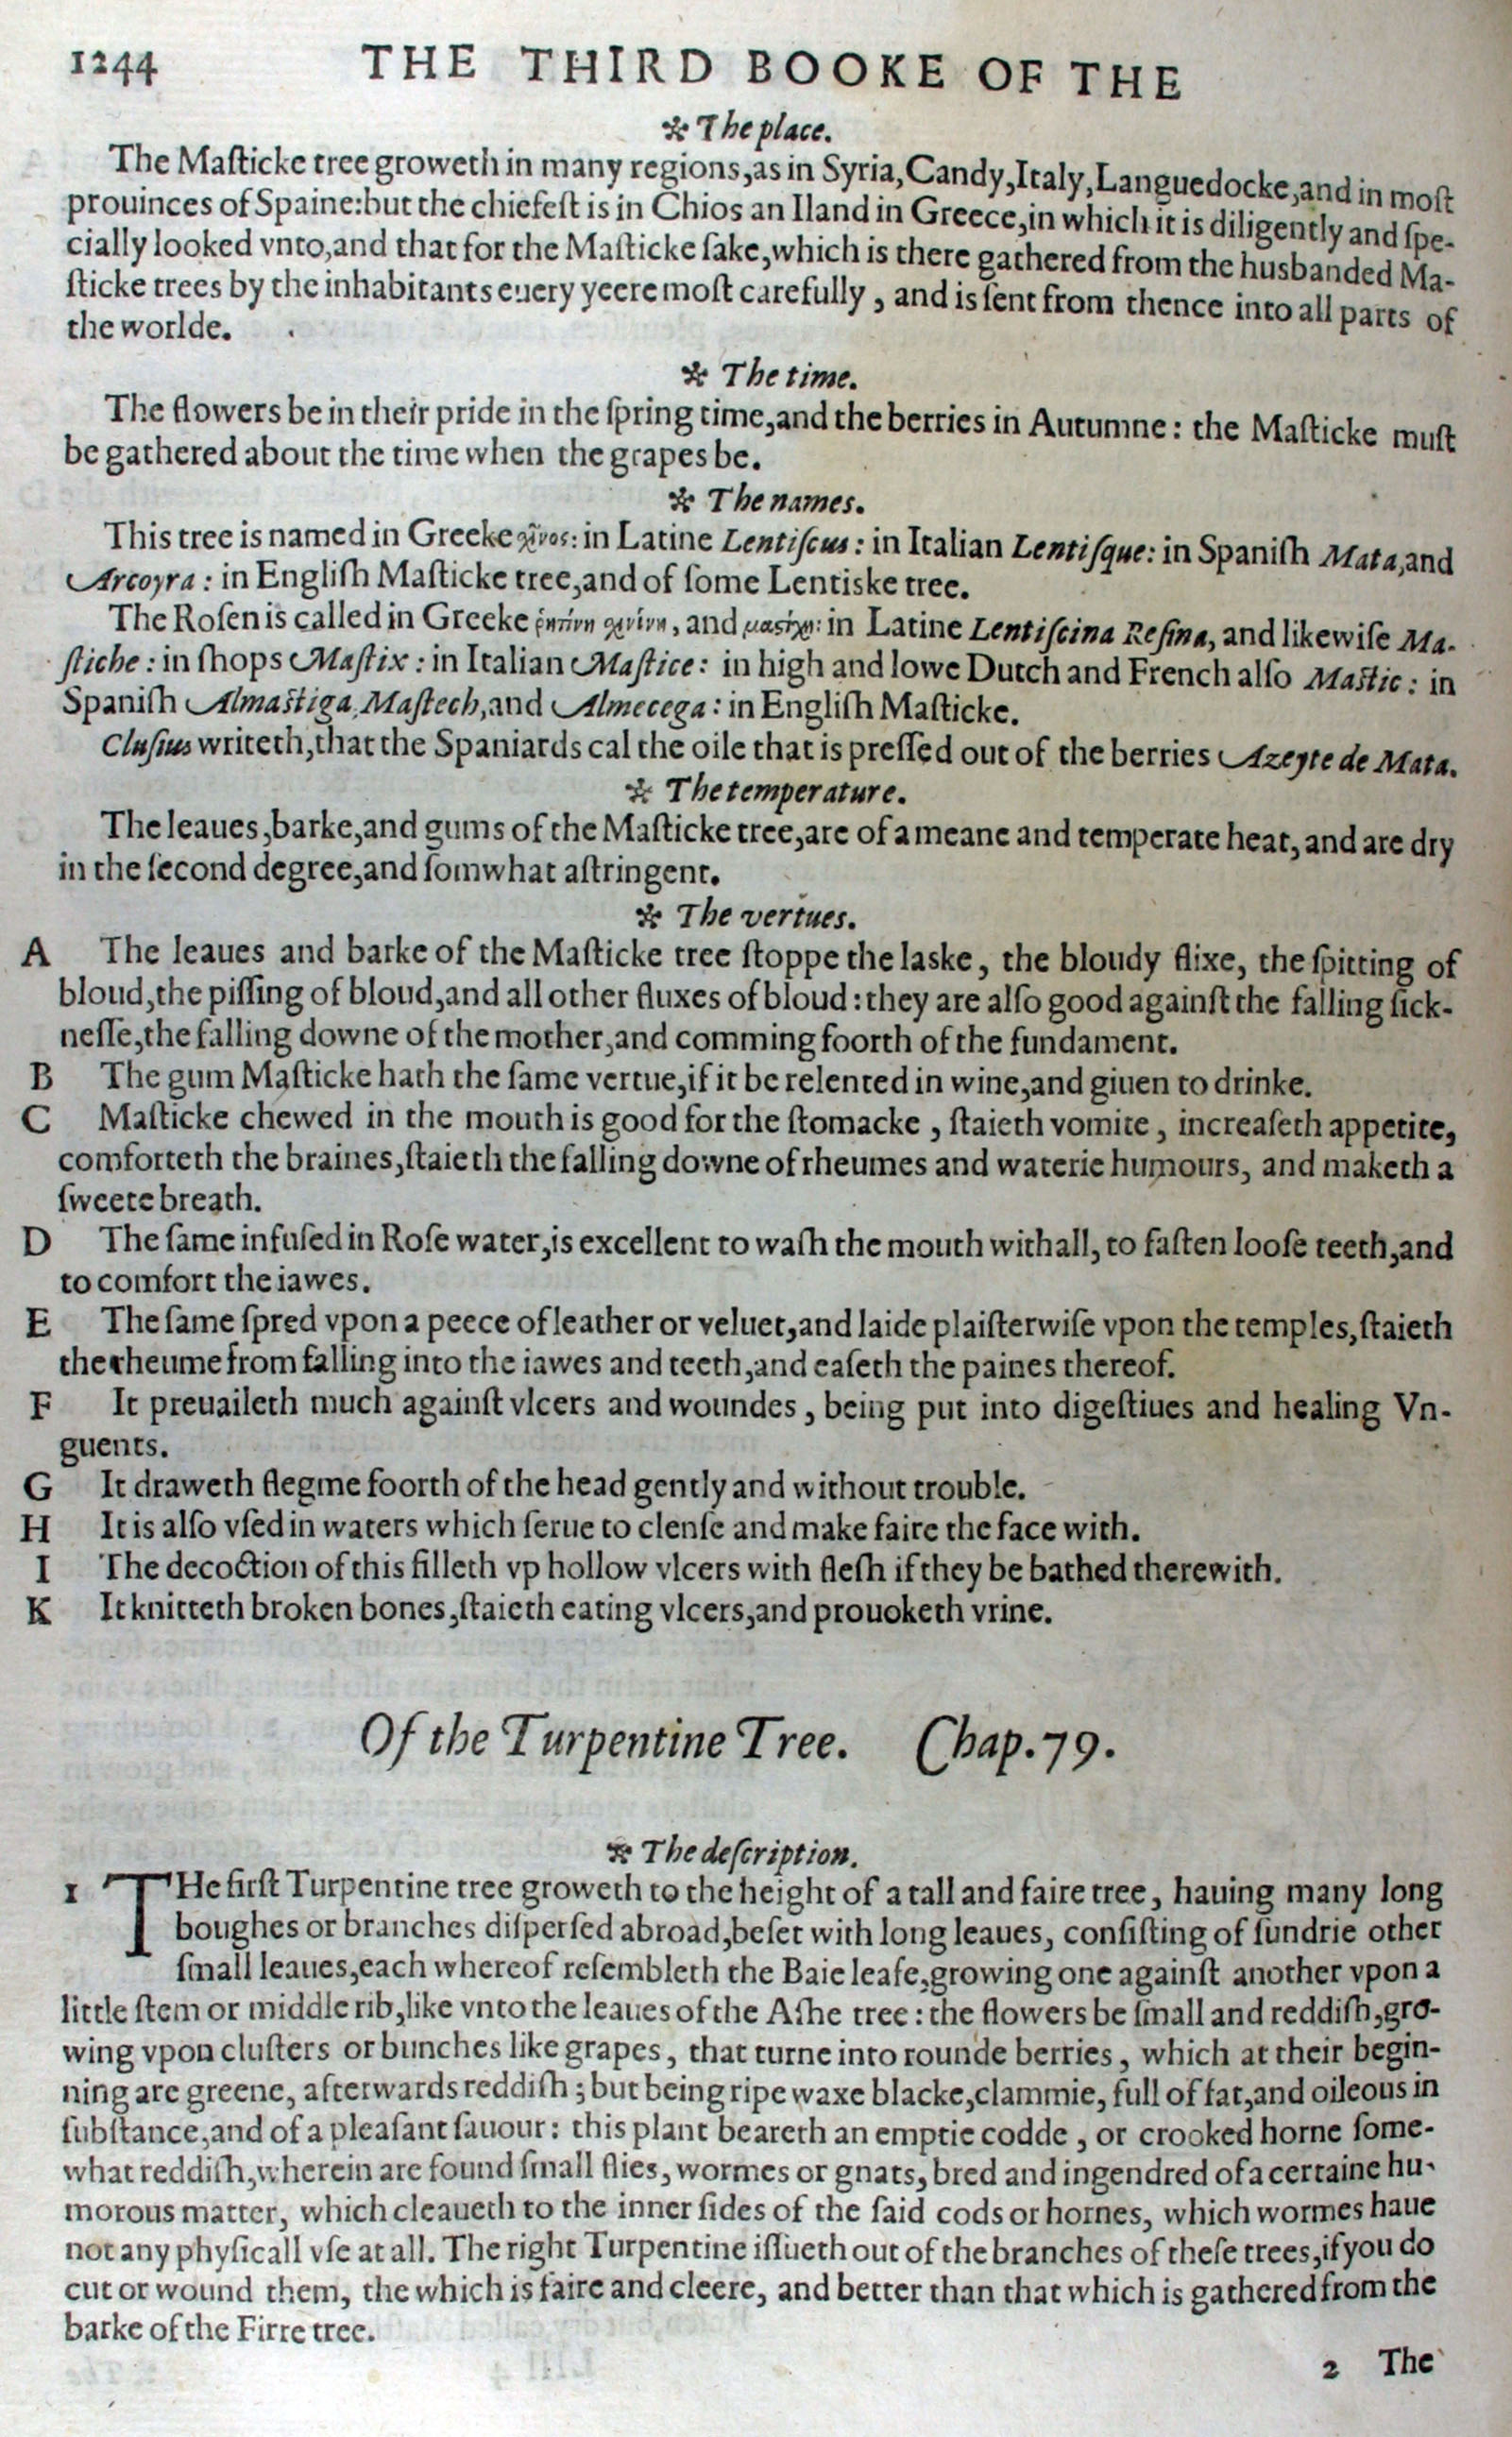 1244 THE THIRD BOOKE OF THE
✻ The place.
The Maſticke tree groweth in many regions,as in Syria,Candy,Italy,Languedocke,and in moſt
prouinces of Spaine:but the chiefeſt is in Chios an Iland in Greece,in which it is diligently and ſpe-
cially looked vnto,and that for the Maſticke ſake,which is there gathered from the husbanded Ma-
ſticke trees by the inhabitants euery yeere moſt carefully , and is ſent from thence into all parts of
the worlde.
✻ The time.
The flowers be in their pride in the ſpring time,and the berries in Autumne: the Maſticke muſt
be gathered about the time when the grapes be.
✻ The names.
This tree is named in Greeke χῖνος: in Latine Lentiſcus: in Italian Lentiſque: in Spaniſh Mata,and
Arcoyra: in Engliſh Maſticke tree,and of ſome Lentiske tree.
The Roſen is called in Greeke ῥητίνη χινίνη, and μαστίχη: in Latine Lentiſcina Reſina, and likewiſe Ma-
ſtiche: in ſhops Maſtix: in Italian Maſtice: in high and lowe Dutch and French alſo Maſtic: in
Spaniſh Almaſtiga,Maſtech,and Almecega: in Engliſh Maſticke.
Cluſius writeth,that the Spaniards cal the oile that is preſſed out of the berries Azeyte de Mata.
✻ The temperature.
The leaues,barke,and gums of the Maſticke tree,are of a meane and temperate heat, and are dry
in the ſecond degree,and ſomwhat aſtringent.
✻ The vertues.
A The leaues and barke of the Maſticke tree ſtoppe the laske, the bloudy flixe, the ſpitting of
bloud,the piſſing of bloud,and all other fluxes of bloud: they are alſo good againſt the falling ſick-
neſſe,the falling downe of the mother,and comming foorth of the fundament.
B The gum Maſticke hath the ſame vertue,if it be relented in wine,and giuen to drinke.
C Maſticke chewed in the mouth is good for the ſtomacke , ſtaieth vomite , increaſeth appetite,
comforteth the braines,ſtaieth the falling downe of rheumes and waterie humours, and maketh a
ſweete breath.
D The ſame infuſed in Roſe water,is excellent to waſh the mouth withall, to faſten looſe teeth,and
to comfort the iawes.
E The ſame ſpred vpon a peece of leather or veluet,and laide plaiſterwiſe vpon the temples,ſtaieth
the rheume from falling into the iawes and teeth,and eaſeth the paines thereof.
F It preuaileth much againſt vlcers and woundes , being put into digeſtiues and healing Vn-
guents.
G It draweth flegme foorth of the head gently and without trouble.
H It is alſo vſed in waters which ſerue to clenſe and make faire the face with.
I The decoction of this filleth vp hollow vlcers with fleſh if they be bathed therewith.
K It knitteth broken bones,ſtaieth eating vlcers,and prouoketh vrine.
Of the Turpentine Tree. Chap.79.
✻ The deſcription.
1 THe firſt Turpentine tree groweth to the height of a tall and faire tree, hauing many long
boughes or branches diſperſed abroad,beſet with long leaues, conſiſting of ſundrie other
ſmall leaues,each whereof reſembleth the Baie leafe,growing one againſt another vpon a
little ſtem or middle rib,like vnto the leaues of the Aſhe tree: the flowers be ſmall and reddiſh,gro-
wing vpon cluſters or bunches like grapes, that turne into rounde berries, which at their begin-
ning are greene, afterwards reddiſh; but being ripe waxe blacke,clammie, full of fat,and oileous in
ſubſtance,and of a pleaſant ſauour: this plant beareth an emptie codde , or crooked horne ſome-
what reddiſh,wherein are found ſmall flies, wormes or gnats, bred and ingendred of a certaine hu-
morous matter, which cleaueth to the inner ſides of the ſaid cods or hornes, which wormes haue
not any phyſicall vſe at all. The right Turpentine iſſueth out of the branches of theſe trees,if you do
cut or wound them, the which is faire and cleere, and better than that which is gathered from the
barke of the Firre tree.
2 The